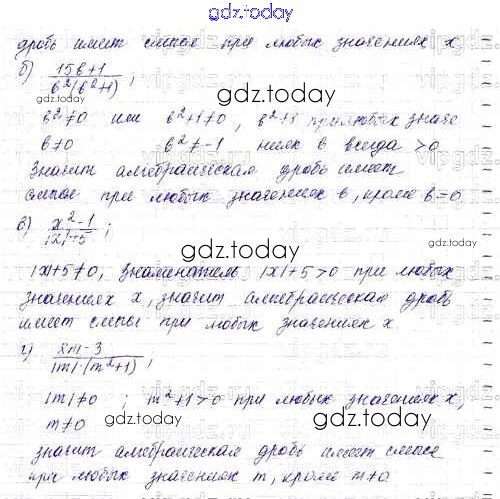 gdz.today
дробь имеет смысл при любых значениях x
б) (15в+1)/(в²(в²+1));
gdz.today
в²≠0 или в²+1≠0, в²+1 при любых значе
в≠0 в²≠-1 ниях в всегда >0
Значит алгебраическая дробь имеет
смысл при любых значениях в, кроме в=0.
gdz.today
в) (x²-1)/(|x|+5);
gdz.today
|x|+5≠0, знаменатель |x|+5>0 при любых
значениях x, значит алгебраическая дробь
имеет смысл при любых значениях x.
gdz.today
г) (2m-3)/(|m|·(m²+1));
|m|≠0 ; m²+1>0 при любых значениях x,
m≠0
gdz.today
gdz.today
значит алгебраическая дробь имеет смысл
при любых значениях m, кроме m≠0.
gdz.today